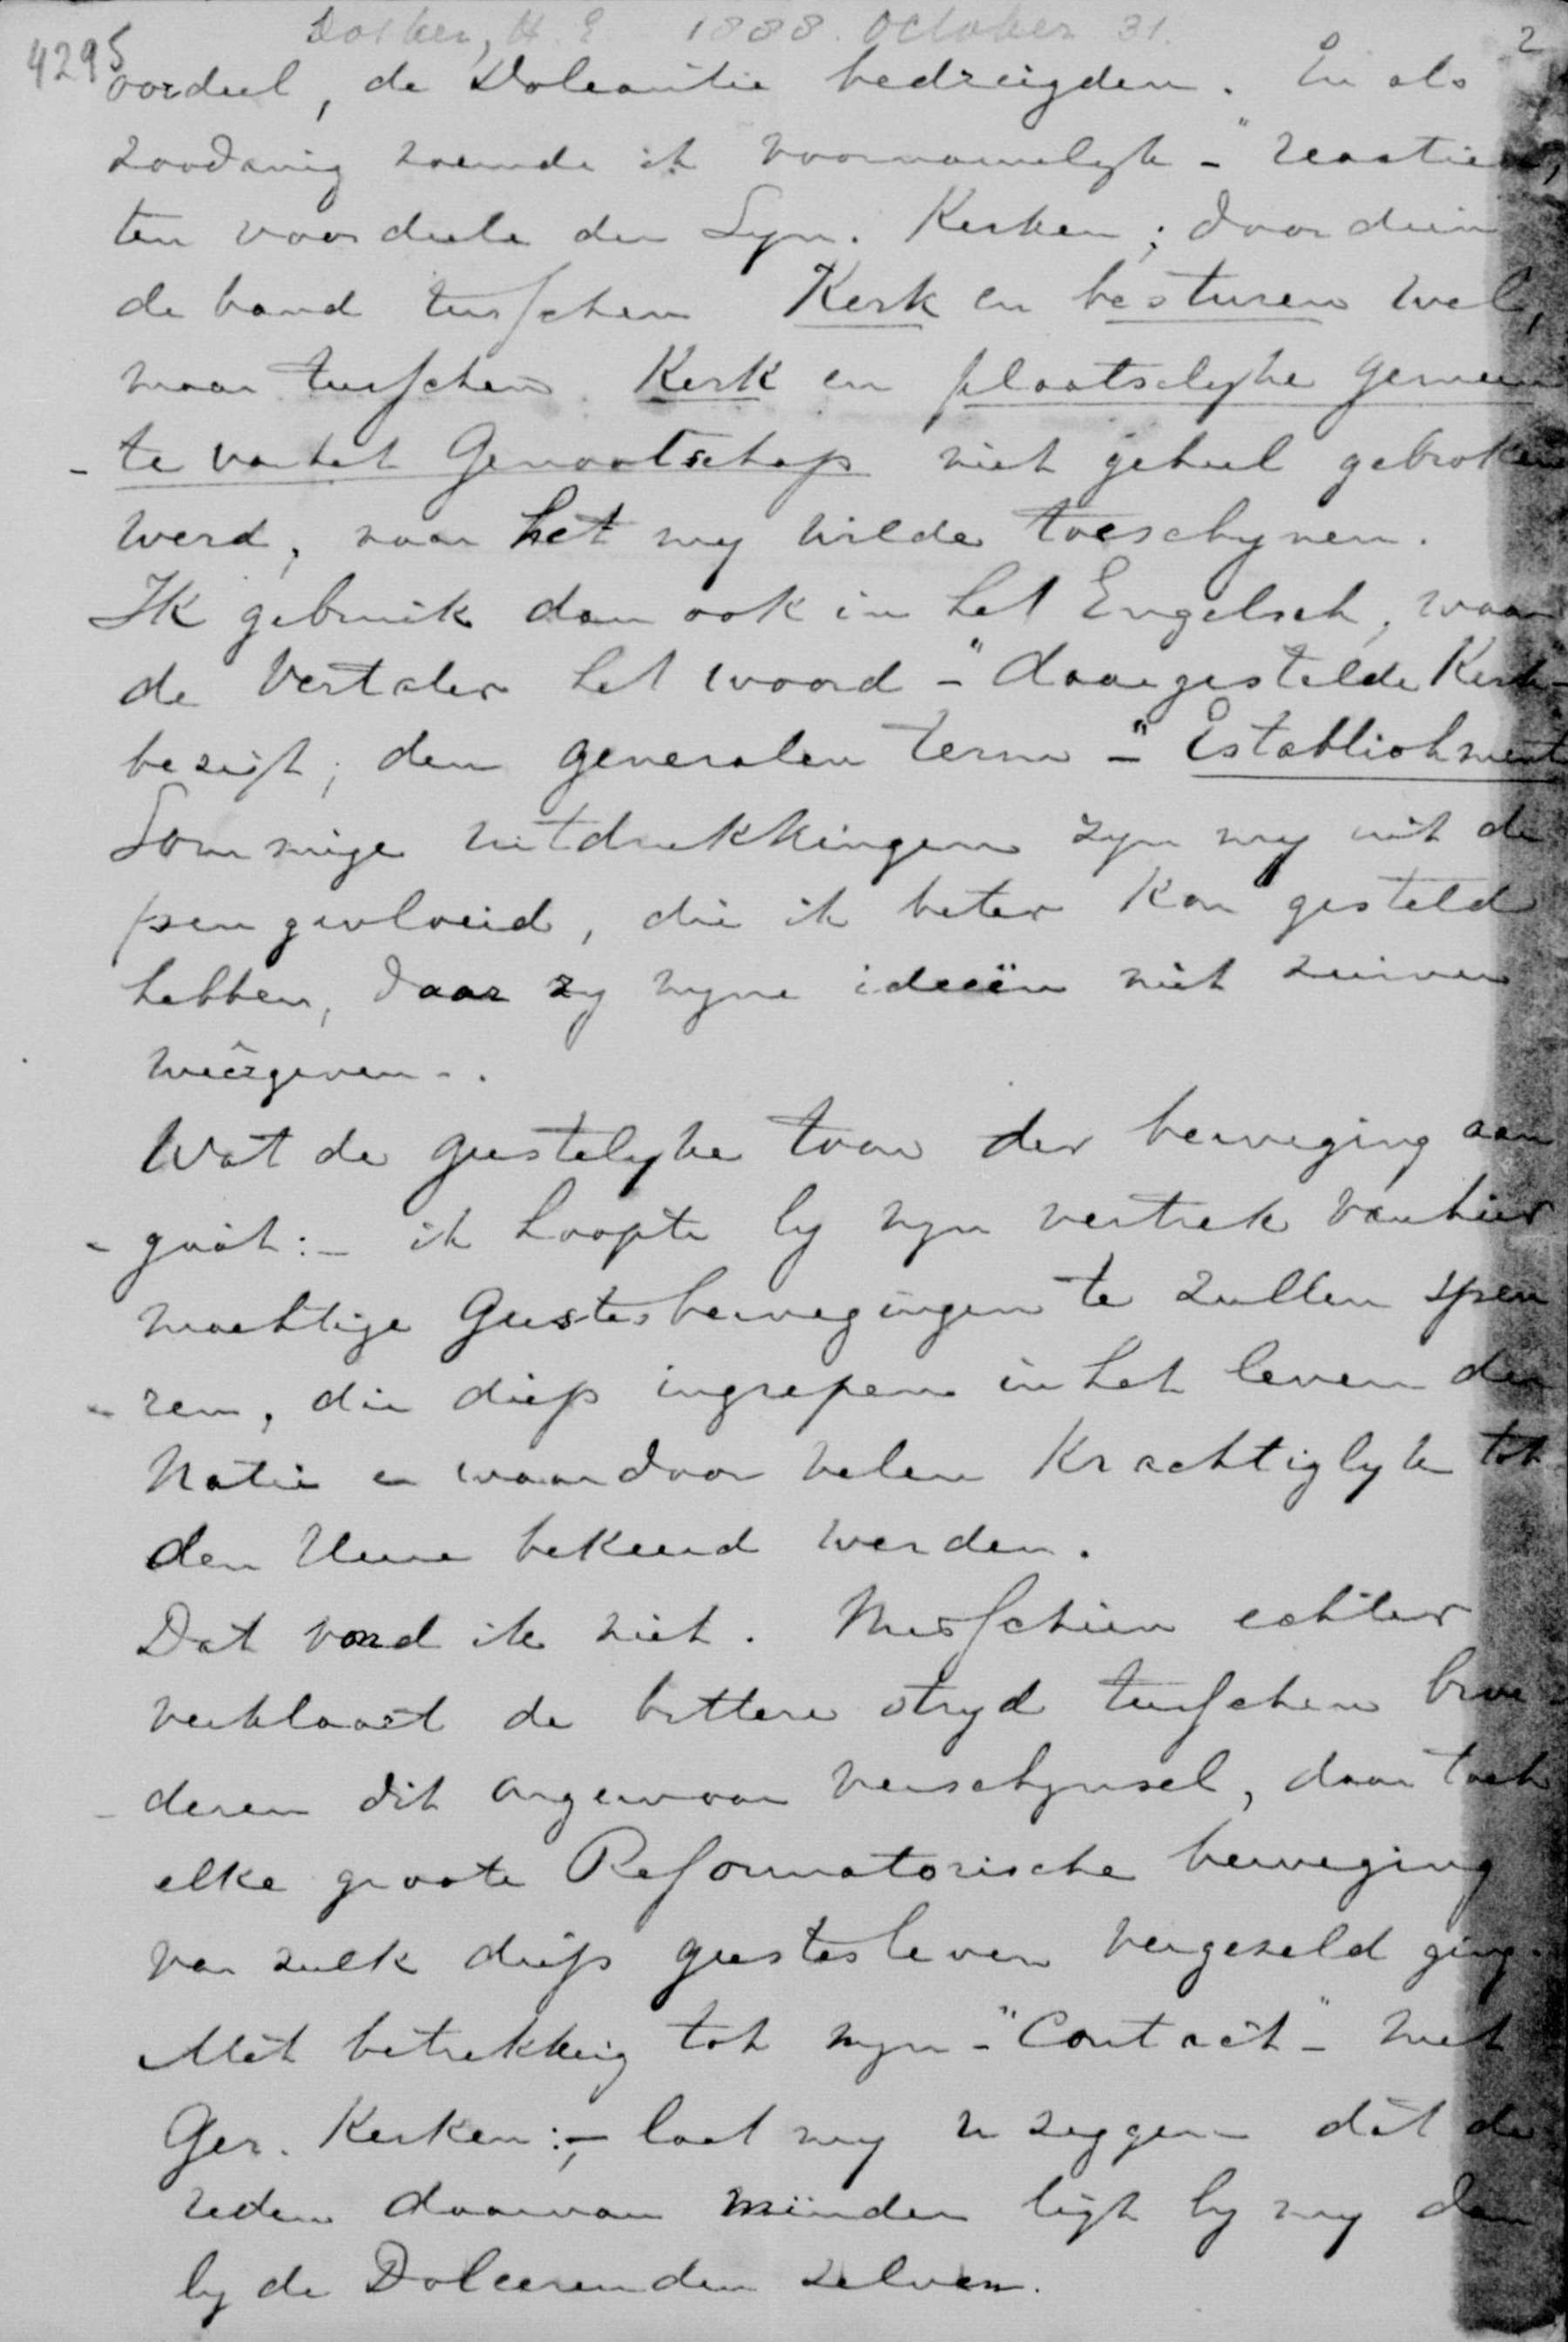 4295 Dosker, H. E. 1888. October 31. 2
oordeel, de Doleantie bedreigden. En als
zoodanig noemde ik voornamelyk - "reactie",
ten voordeele der Syn. Kerken; doordien
de band tusschen Kerk en besturen wel,
maar tusschen Kerk en plaatselyke gemeen
- te van het Genootschap niet geheel gebroken
werd, naar het my wilde toeschynen.
Ik gebruik dan ook in het Engelsch, waar
de Vertaler het woord - "daargestelde Kerk -
bezigt, den generalen term - "Establishment
Sommige uitdrukkingen zyn my uit de
pen gevloeid, die ik beter kon gesteld
hebben, daar zy myne ideeën niet zuiver
weêrgeven - .
Wat de geestelyke toon der beweging aan
- gaat: - ik hoopte by myn vertrek van hier
machtige Geestesbewegingen te zullen speu
- ren, die diep ingrepen in het leven der
Natie en waardoor velen krachtiglyk tot
den Heere bekeerd werden.
Dat vond ik niet. Misschien echter
verklaart de bittere stryd tusschen broe
- deren dit ongewoon verschynsel, daar toch
elke groote Reformatorische beweging
van zulk diep geestesleven vergezeld ging.
Met betrekking tot myn - "Contact" - met
Ger. Kerken: - laat my u zeggen dat de
reden daarvan minder ligt by my dan
by de Doleerenden zelven.